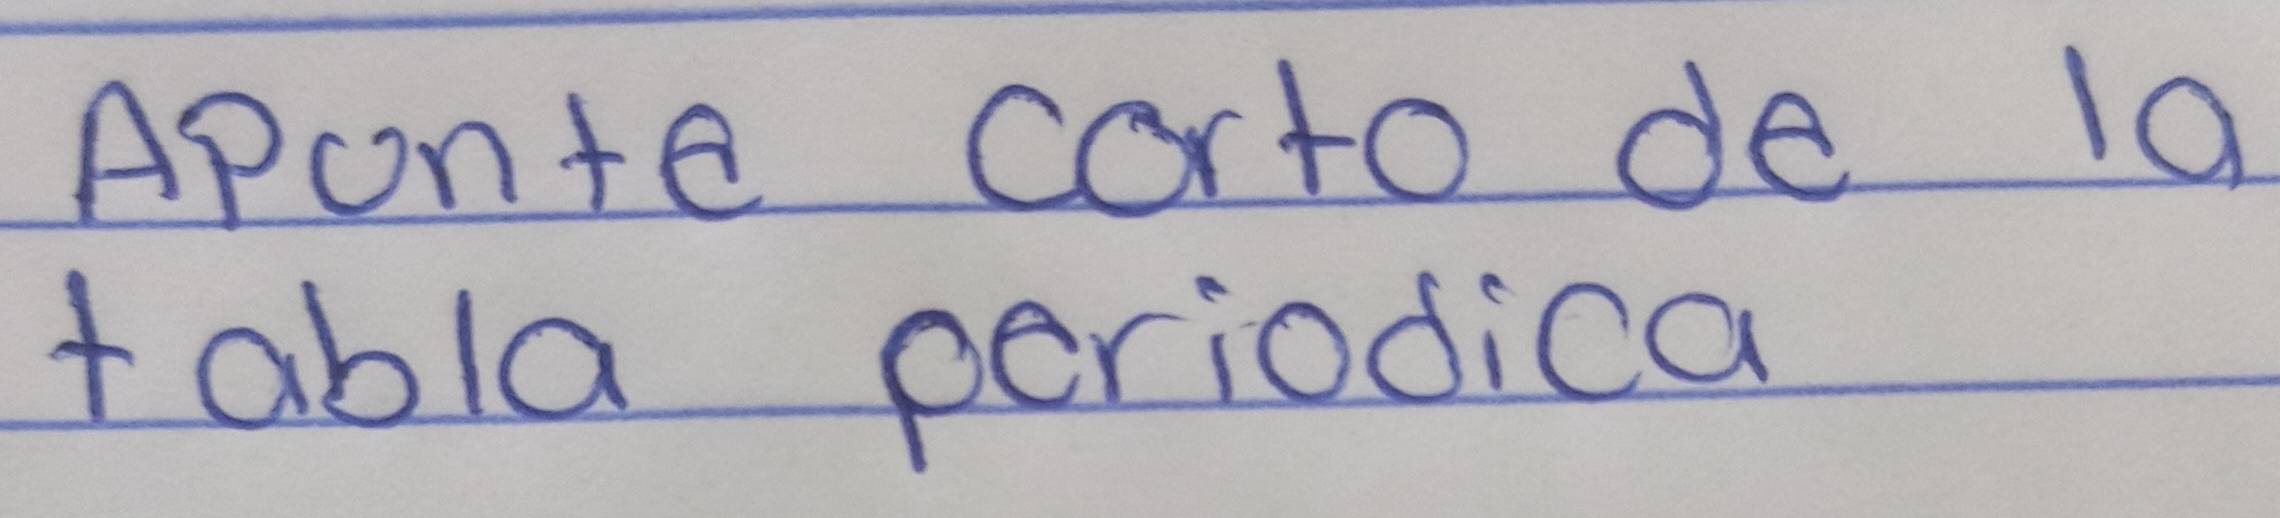 Aponte corto de la
tabla periodica